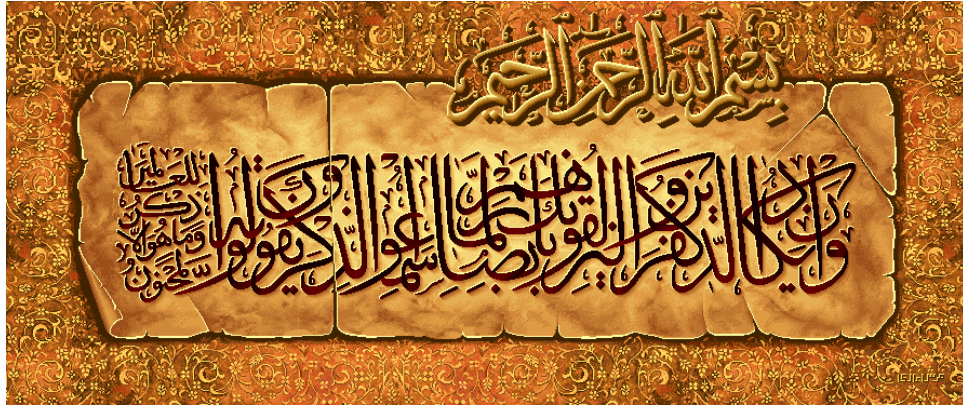 بِسْمِ اللَّهِ الرَّحْمَٰنِ الرَّحِيمِ
وَإِن يَكَادُ الَّذِينَ كَفَرُوا لَيُزْلِقُونَكَ بِأَبْصَارِهِمْ لَمَّا سَمِعُوا الذِّكْرَ وَيَقُولُونَ إِنَّهُ لَمَجْنُونٌ وَمَا هُوَ إِلَّا ذِكْرٌ لِّلْعَالَمِينَ